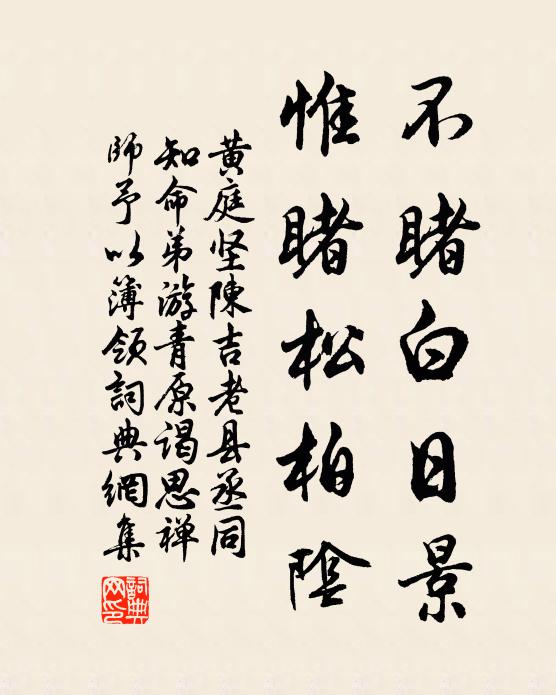 不睹白日景
惟睹松柏陰
黄庭坚陳吉老县丞同
知命弟游青原谒思禅
師予以簿领詞典網集
詞典网印